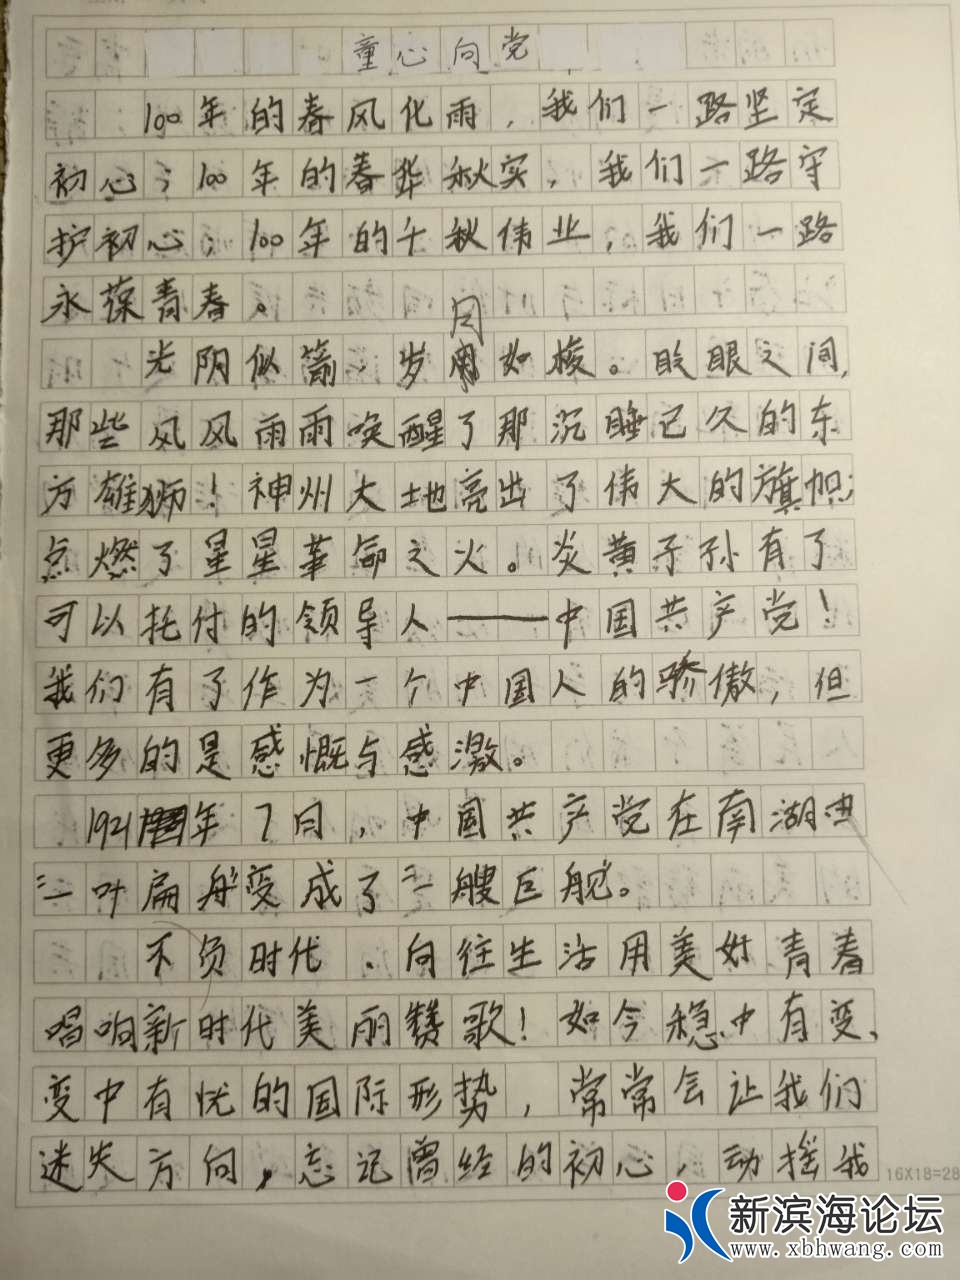 童心向党
100年的春风化雨，我们一路坚定
初心；100年的春华秋实，我们一路守
护初心；100年的千秋伟业，我们一路
永葆青春。
月
光阴似箭，岁如梭。眨眼之间，
那些风风雨雨唤醒了那沉睡已久的东
方雄狮！神州大地亮出了伟大的旗帜；
点燃了星星革命之火。炎黄子孙有了
可以托付的领导人——中国共产党！
我们有了作为一个中国人的骄傲，但
更多的是感慨与感激。
1921年7月，中国共产党在南湖由
"一叶扁舟"变成了"一艘巨舰"。
不负时代、向往生活用美好青春
唱响新时代美丽赞歌！如今稳中有变、
变中有忧的国际形势，常常会让我们
迷失方向，忘记曾经的初心，动摇我
16X18=28
新滨海论坛
www.xbhwang.com